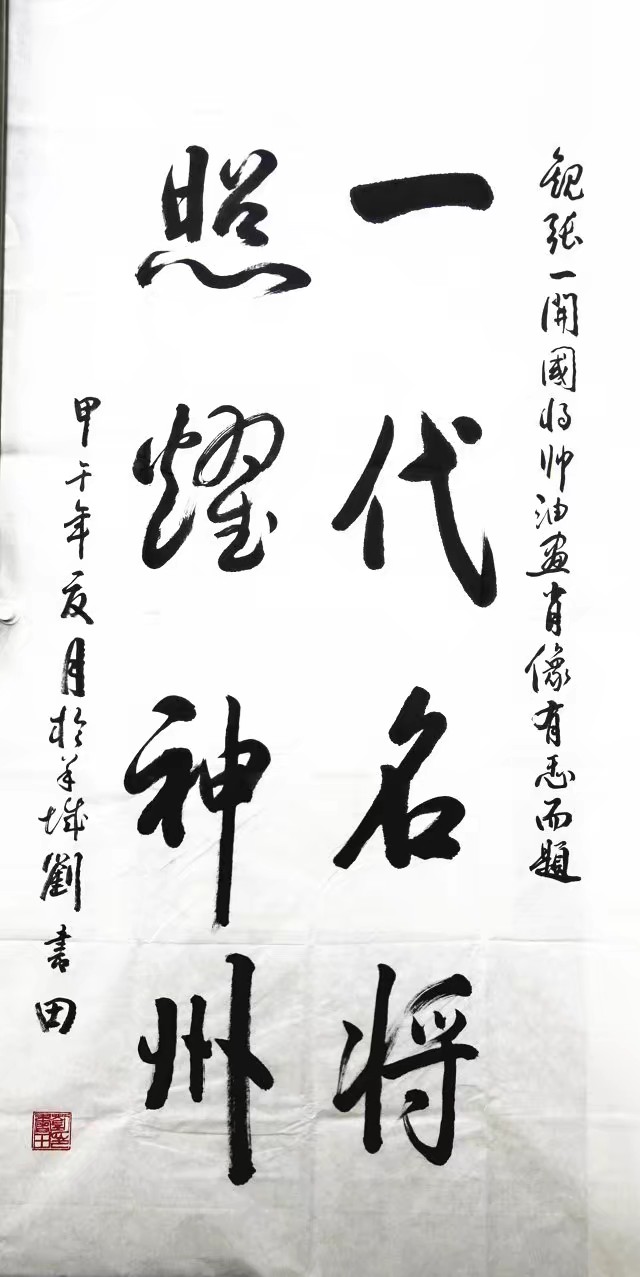 观张一開國将帅油画肖像有感而題
一代名将
照耀神州
甲午年夏月於羊城劉書田